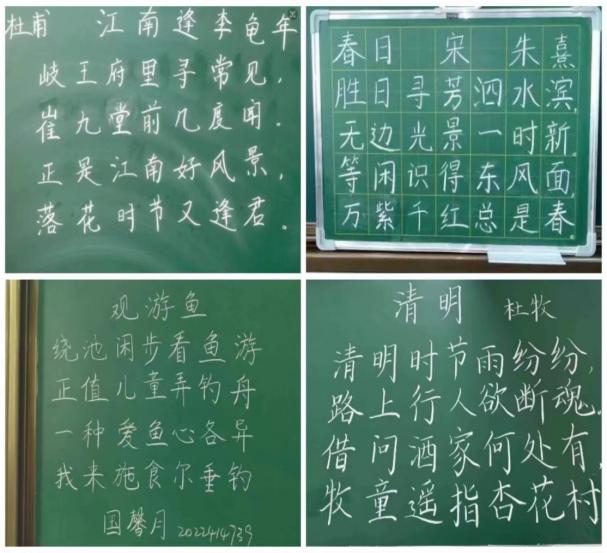 杜甫 江南逢李龟年
岐王府里寻常见，
崔九堂前几度闻．
正是江南好风景，
落花时节又逢君。
春日 宋 朱熹
胜日寻芳泗水滨，
无边光景一时新
等闲识得东风面，
万紫千红总是春
观游鱼
绕池闲步看鱼游
正值儿童弄钓舟
一种爱鱼心各异
我来施食尔垂钓
国馨月 2022414739
清明 杜牧
清明时节雨纷纷，
路上行人欲断魂．
借问酒家何处有，
牧童遥指杏花村